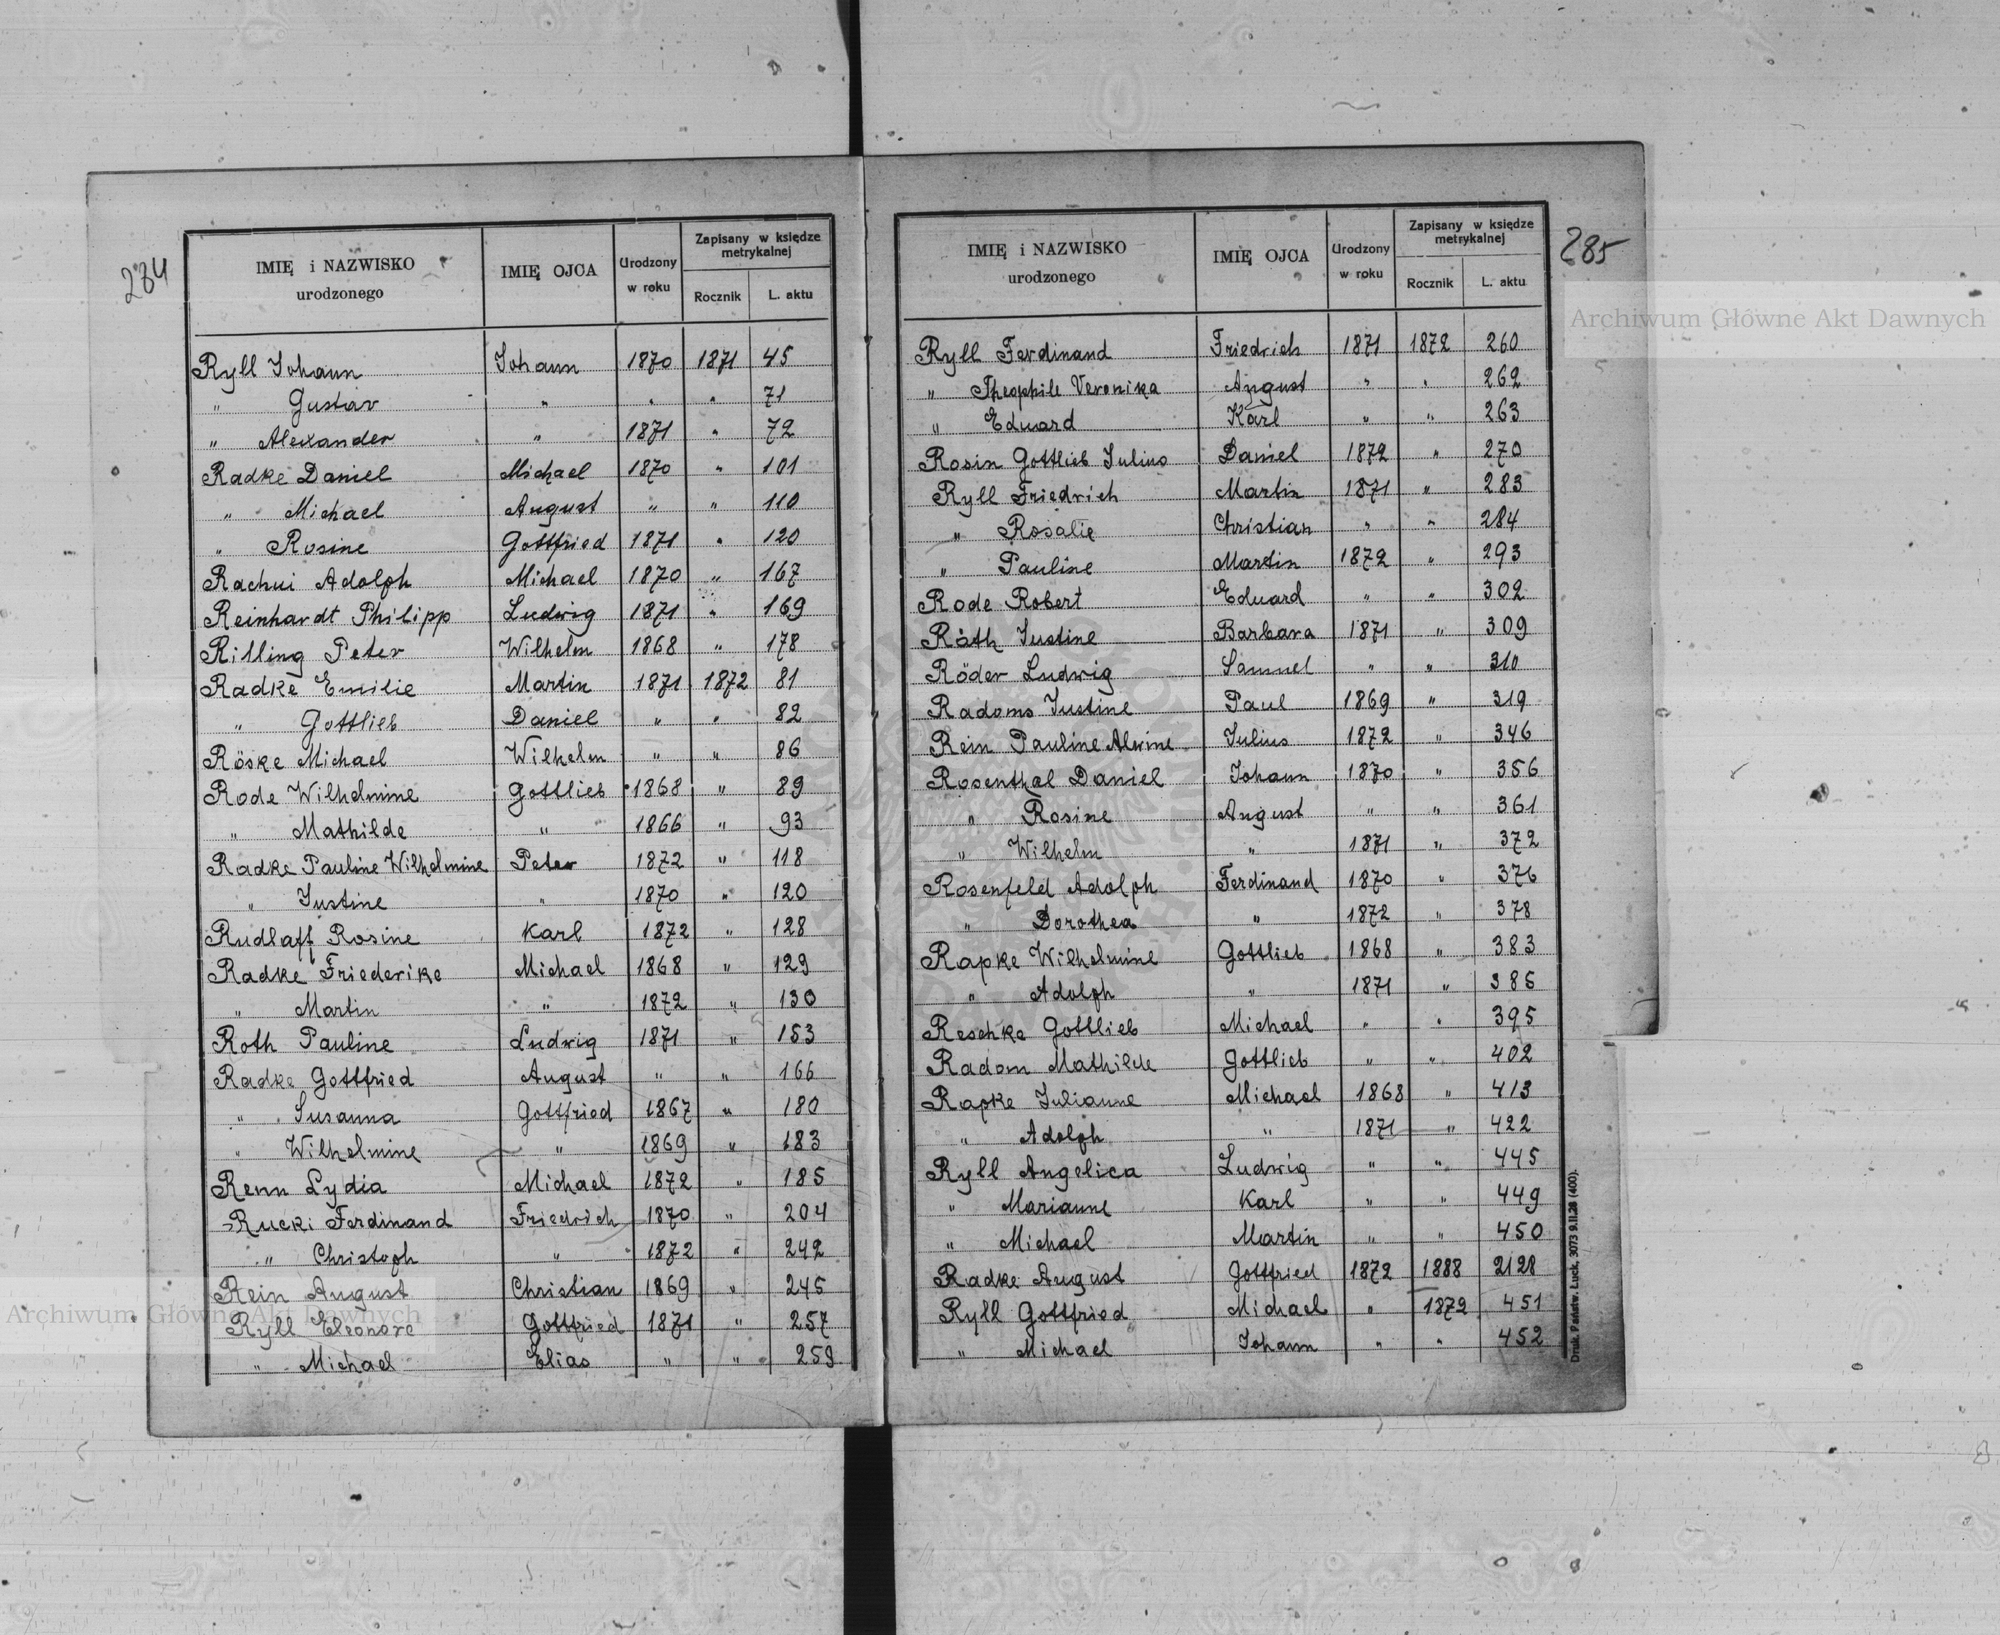 284
IMIĘ i NAZWISKO urodzonego | IMIĘ OJCA | Urodzony w roku | Zapisany w księdze metrykalnej
Rocznik | L. aktu
Ryll Johann | Johann | 1870 | 1871 | 45
" Gustav | " | " | " | 71
" Alexander | " | 1871 | " | 72
Radke Daniel | Michael | 1870 | " | 101
" Michael | August | " | " | 110
" Rosine | Gottfried | 1871 | " | 120
Rachui Adolph | Michael | 1870 | " | 167
Reinhardt Philipp | Ludwig | 1871 | " | 169
Rilling Peter | Wilhelm | 1868 | " | 178
Radke Emilie | Martin | 1871 | 1872 | 81
" Gottlieb | Daniel | " | " | 82
Röske Michael | Wilhelm | " | " | 86
Rode Wilhelmine | Gottlieb | 1868 | " | 89
" Mathilde | " | 1866 | " | 93
Radke Pauline Wilhelmine | Peter | 1872 | " | 118
" Justine | " | 1870 | " | 120
Rudlaff Rosine | Karl | 1872 | " | 128
Radke Friederike | Michael | 1868 | " | 129
" Martin | " | 1872 | " | 130
Roth Pauline | Ludwig | 1871 | " | 153
Radke Gottfried | August | " | " | 166
" Susanna | Gottfried | 1867 | " | 180
" Wilhelmine | " | 1869 | " | 183
Renn Lydia | Michael | 1872 | " | 185
Rucki Ferdinand | Friedrich | 1870 | " | 204
" Christoph | " | 1872 | " | 242
Rein August | Christian | 1869 | " | 245
Ryll Eleonore | Gottfried | 1871 | " | 257
" Michael | Elias | " | " | 259
285
IMIĘ i NAZWISKO urodzonego | IMIĘ OJCA | Urodzony w roku | Zapisany w księdze metrykalnej
Rocznik | L. aktu
Ryll Ferdinand | Friedrich | 1871 | 1872 | 260
" Theophile Veronika | August | " | " | 262
" Eduard | Karl | " | " | 263
Rosin Gottlieb Julius | Daniel | 1872 | " | 270
Ryll Friedrich | Martin | 1871 | " | 283
" Rosalie | Christian | " | " | 284
" Pauline | Martin | 1872 | " | 293
Rode Robert | Eduard | " | " | 302
Räth Justine | Barbara | 1871 | " | 309
Röder Ludwig | Samuel | " | " | 310
Radoms Justine | Paul | 1869 | " | 319
Rein Pauline Alwine | Julius | 1872 | " | 346
Rosenthal Daniel | Johann | 1870 | " | 356
" Rosine | August | " | " | 361
" Wilhelm | " | 1871 | " | 372
Rosenfeld Adolph | Ferdinand | 1870 | " | 376
" Dorothea | " | 1872 | " | 378
Rapke Wilhelmine | Gottlieb | 1868 | " | 383
" Adolph | " | 1871 | " | 385
Reschke Gottlieb | Michael | " | " | 395
Radom Mathilde | Gottlieb | " | " | 402
Rapke Julianne | Michael | 1868 | " | 413
" Adolph | " | 1871 | " | 422
Ryll Angelica | Ludwig | " | " | 445
" Marianne | Karl | " | " | 449
" Michael | Martin | " | " | 450
Radke August | Gottfried | 1872 | 1888 | 2128
Ryll Gottfried | Michael | " | 1872 | 451
" Michael | Johann | " | " | 452
Druk. Państw. Łuck, 3073 9.II.28 (400).
Archiwum Główne Akt Dawnych
Archiwum Główne Akt Dawnych